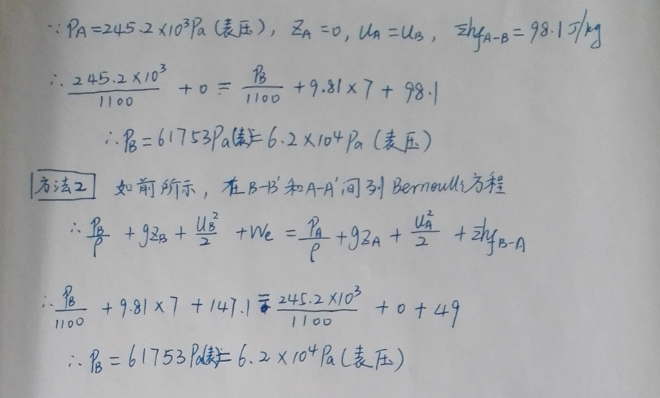 ∵ P_A=245.2×10³Pa (表压), Z_A=0, u_A=u_B, Σhf_{A-B}=98.1 J/kg
∴ 245.2×10³/1100 + 0 = P_B/1100 + 9.81×7 + 98.1
∴ P_B=61753Pa(表)=6.2×10⁴Pa (表压)
方法2 如前所示, 在B-B'和A-A'间列Bernoulli方程
∴ P_B/ρ + gZ_B + u_B²/2 + We = P_A/ρ + gZ_A + u_A²/2 + Σhf_{B-A}
∴ P_B/1100 + 9.81×7 + 147.1 = 245.2×10³/1100 + 0 + 49
∴ P_B=61753Pa(表)=6.2×10⁴Pa (表压)